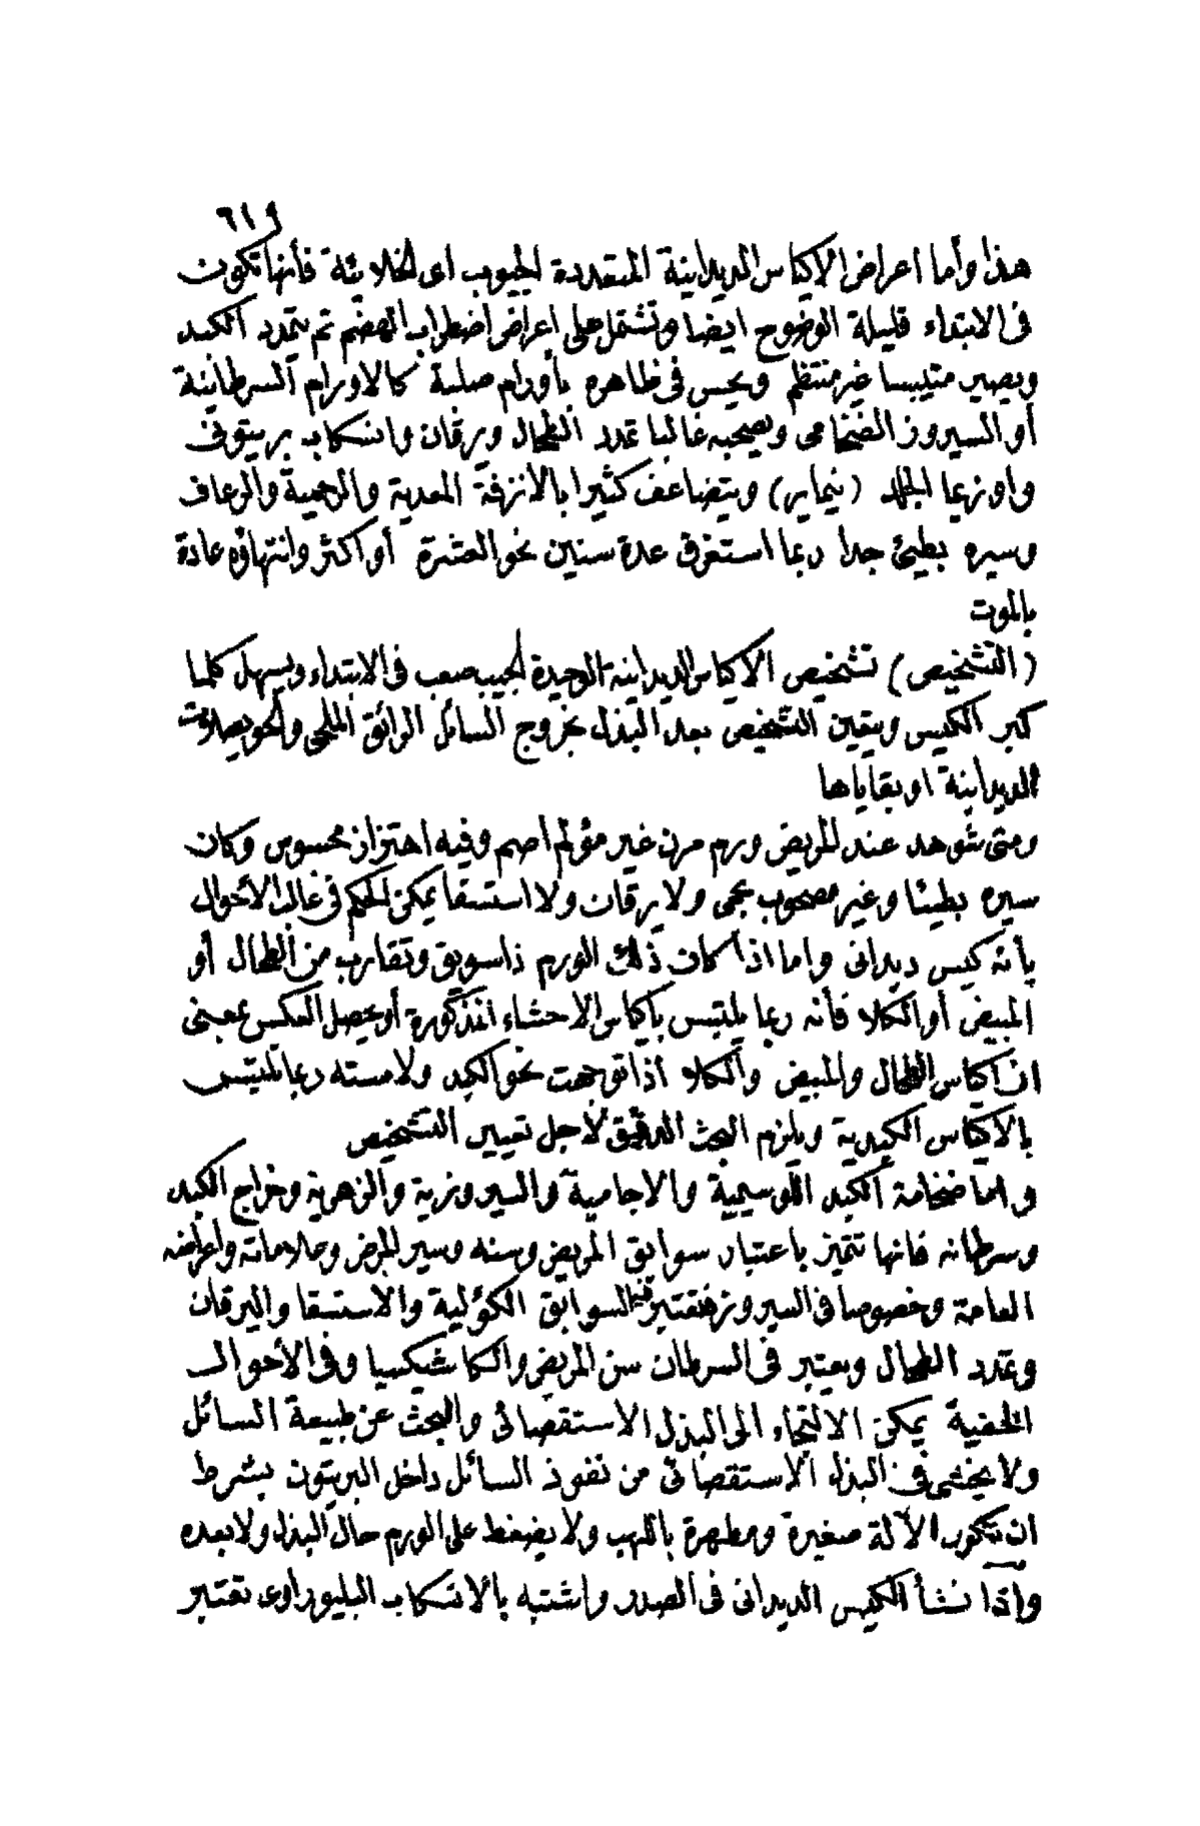 ٦١٩
هذا وأما اعراض الاكياس الديدانية المتعددة الجيوب اى الخلائية فأنها تكون
فى الابتداء قليلة الوضوح ايضا وتشتمل على اعراض اضطراب الهضم ثم يتمدد الكبد
ويصير متيبسا غير منتظم ويحس فى ظاهره بأورام صلبة كالاورام السرطانية
أو السيروز الضخامى ويصحبه غالبا تمدد الطحال ويرقان وانسكاب بريتونى
واوزيما الجلد (نيماير) ويتضاعف كثيرا بالانزفة المعدية والرحمية والرعاف
وسيره بطيئ جدا ربما استغرق عدة سنين نحو العشرة أو أكثر وانتهاؤه عادة
بالموت
(التشخيص) تشخيص الاكياس الديدانية الوحيدة الجيب صعب فى الابتداء ويسهل كلما
كبر الكيس ويتقين التشخيص بعد البذل بخروج السائل الرائق الملحى والحويصلات
الديدانية او بقاياها
ومتى شوهد عند المريض ورم مرن غير مؤلم اصم وفيه اهتزاز محسوس وكان
سيره بطيئا وغير مصحوب بحمى ولا يرقان ولا استسقا يمكن الحكم فى غالب الأحوال
بأنه كيس ديدانى واما اذا كان ذلك الورم ذا سويق وتقارب من الطحال أو
المبيض أو الكلا فأنه ربما يلتبس بأكياس الاحشاء المذكورة أو يحصل العكس بمعنى
ان اكياس الطحال والمبيض والكلا أذا توجهت نحو الكبد ولامسته ربما تلتبس
بالاكياس الكبدية ويلزم البحث الدقيق لأجل تعيين التشخيص
واما ضخامة الكبد اللوسيمية والاجامية والسيروزية والزهرية وخراج الكبد
وسرطانه فانها تتميز باعتبار سوابق المريض وسنه وسير المرض وعلاماته واعراضه
العامة وخصوصا فى السيروز فتعتبر فيه السوابق الكؤلية والاستسقا واليرقان
وتمدد الطحال ويعتبر فى السرطان سن المريض والكاشكسيا وفى الأحوال
الخفية يمكن الالتجاء الى البذل الاستقصائى والبحث عن طبيعة السائل
ولا يخشى فى البذل الاستقصائى من نفوذ السائل داخل البريتون بشرط
ان تكون الآلة صغيرة ومطهرة باللهب ولا يضغط على الورم حال البذل ولا بعده
واذا نشأ الكيس الديدانى فى الصدر واشتبه بالانسكاب البليوراوى تعتبر